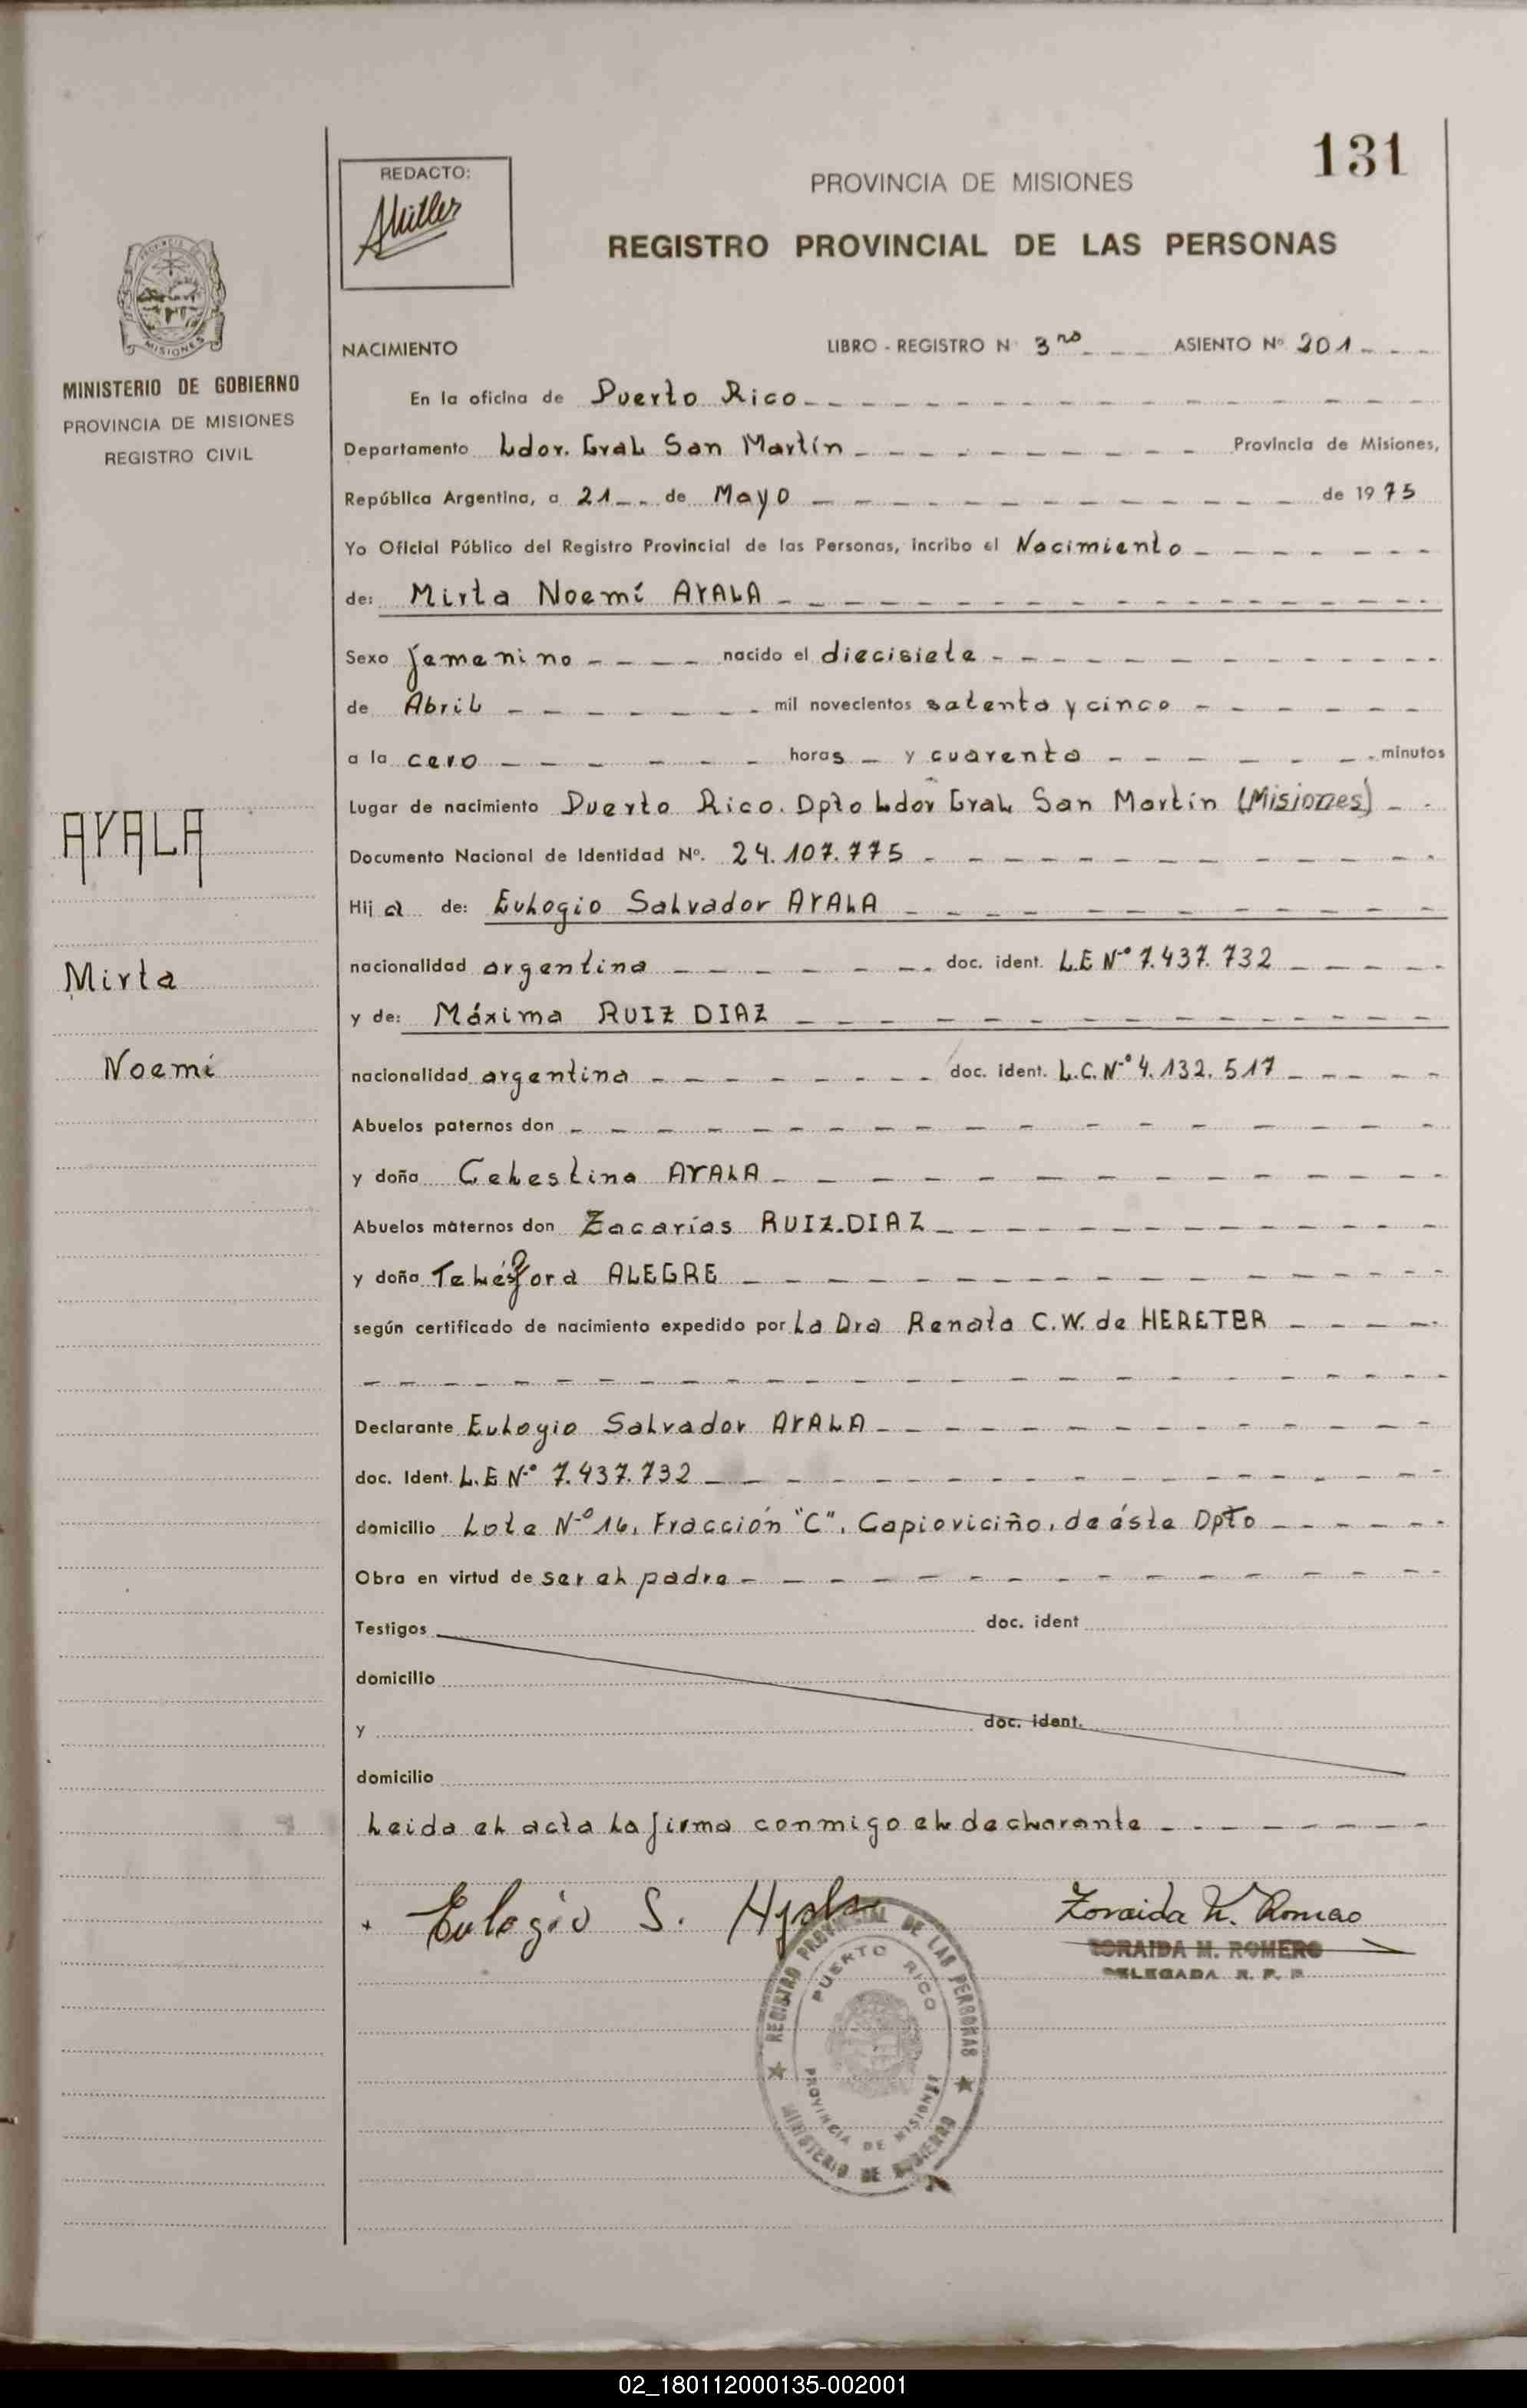 131
REDACTO:
Müller
PROVINCIA DE MISIONES
REGISTRO PROVINCIAL DE LAS PERSONAS
MISIONES
MINISTERIO DE GOBIERNO
PROVINCIA DE MISIONES
REGISTRO CIVIL
NACIMIENTO LIBRO - REGISTRO N° 3ro ASIENTO N° 201
En la oficina de Puerto Rico
Departamento Ldor. Gral San Martín Provincia de Misiones,
República Argentina, a 21 de Mayo de 1975
Yo Oficial Público del Registro Provincial de las Personas, incribo el Nacimiento
de: Mirta Noemí AYALA
Sexo femenino nacido el diecisiete
de Abril mil novecientos setenta y cinco
a la cero horas y cuarenta minutos
Lugar de nacimiento Puerto Rico. Dpto Ldor Gral San Martín (Misiones)
AYALA
Documento Nacional de Identidad N°. 24.107.775
Hij a de: Eulogio Salvador AYALA
Mirta
nacionalidad argentina doc. ident. L.E N° 7.437.732
y de: Máxima RUIZ DIAZ
Noemí
nacionalidad argentina doc. ident. L.C. N° 4.132.517
Abuelos paternos don
y doña Celestina AYALA
Abuelos maternos don Zacarías RUIZ.DIAZ
y doña Telésfora ALEGRE
según certificado de nacimiento expedido por La Dra Renata C.W. de HERETER
Declarante Eulogio Salvador AYALA
doc. Ident. L.E N° 7.437.732
domicilio Lote N° 16, Fracción "C", Capioviciño, de éste Dpto
Obra en virtud de ser el padre
Testigos doc. ident
domicilio
y doc. ident.
domicilio
Leida el acta la firma conmigo el declarante
Eulogio S. Ayala Zoraida M. Romero
ZORAIDA M. ROMERO
DELEGADA R. P. P.
REGISTRO PROVINCIAL DE LAS PERSONAS
PUERTO RICO
PROVINCIA DE MISIONES
MINISTERIO DE GOBIERNO
02_180112000135-002001